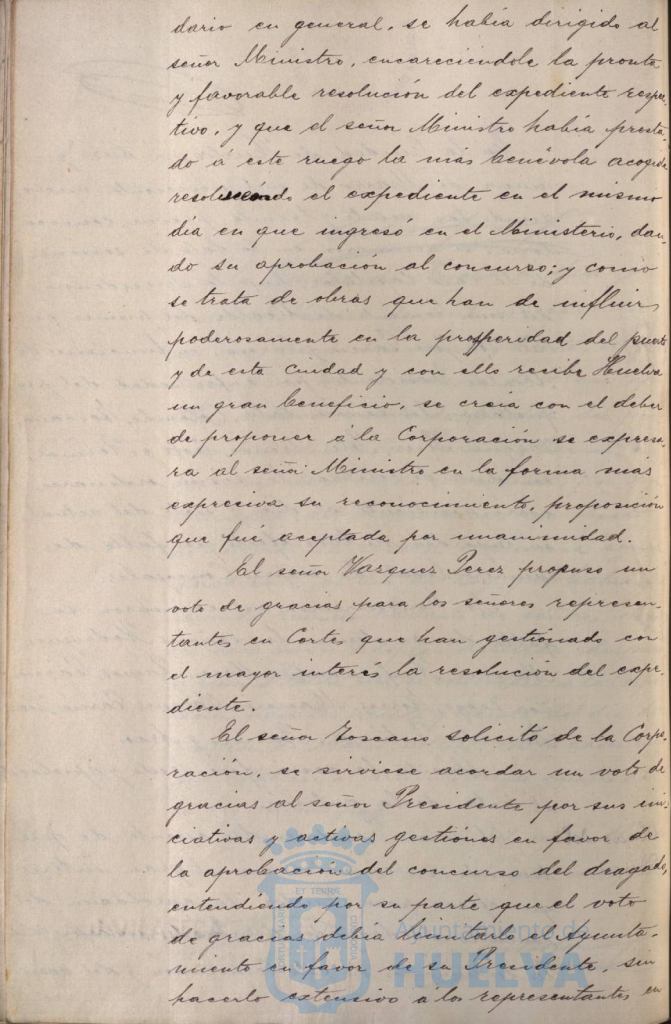 dario en general, se había dirigido al
señor Ministro, encareciéndole la pronta
y favorable resolución del expediente respec-
tivo, y que el señor Ministro había presta-
do á este ruego la más benévola acogida
resolviendo el expediente en el mismo
día en que ingresó en el Ministerio, dan-
do su aprobación al concurso; y como
se trata de obras que han de influir
poderosamente en la prosperidad del puerto
y de esta Ciudad y con ello recibe Huelva
un gran beneficio, se creía con el deber
de proponer á la Corporación se expresa-
ra al señor Ministro en la forma más
expresiva su reconocimiento, proposición
que fué aceptada por unanimidad.
El señor Vazquez Perez propuso un
voto de gracias para los señores represen-
tantes en Cortes que han gestionado con
el mayor interés la resolución del expe-
diente.
El señor Toscano solicitó de la Corpo-
ración, se sirviese acordar un voto de
gracias al señor Presidente por sus ini-
ciativas y activas gestiones en favor de
la aprobación del concurso del dragado,
entendiendo por su parte que el voto
de gracias debía limitarlo el Ayunta-
miento en favor de su Presidente, sin
hacerlo extensivo á los representantes en
Ayuntamiento de
HUELVA